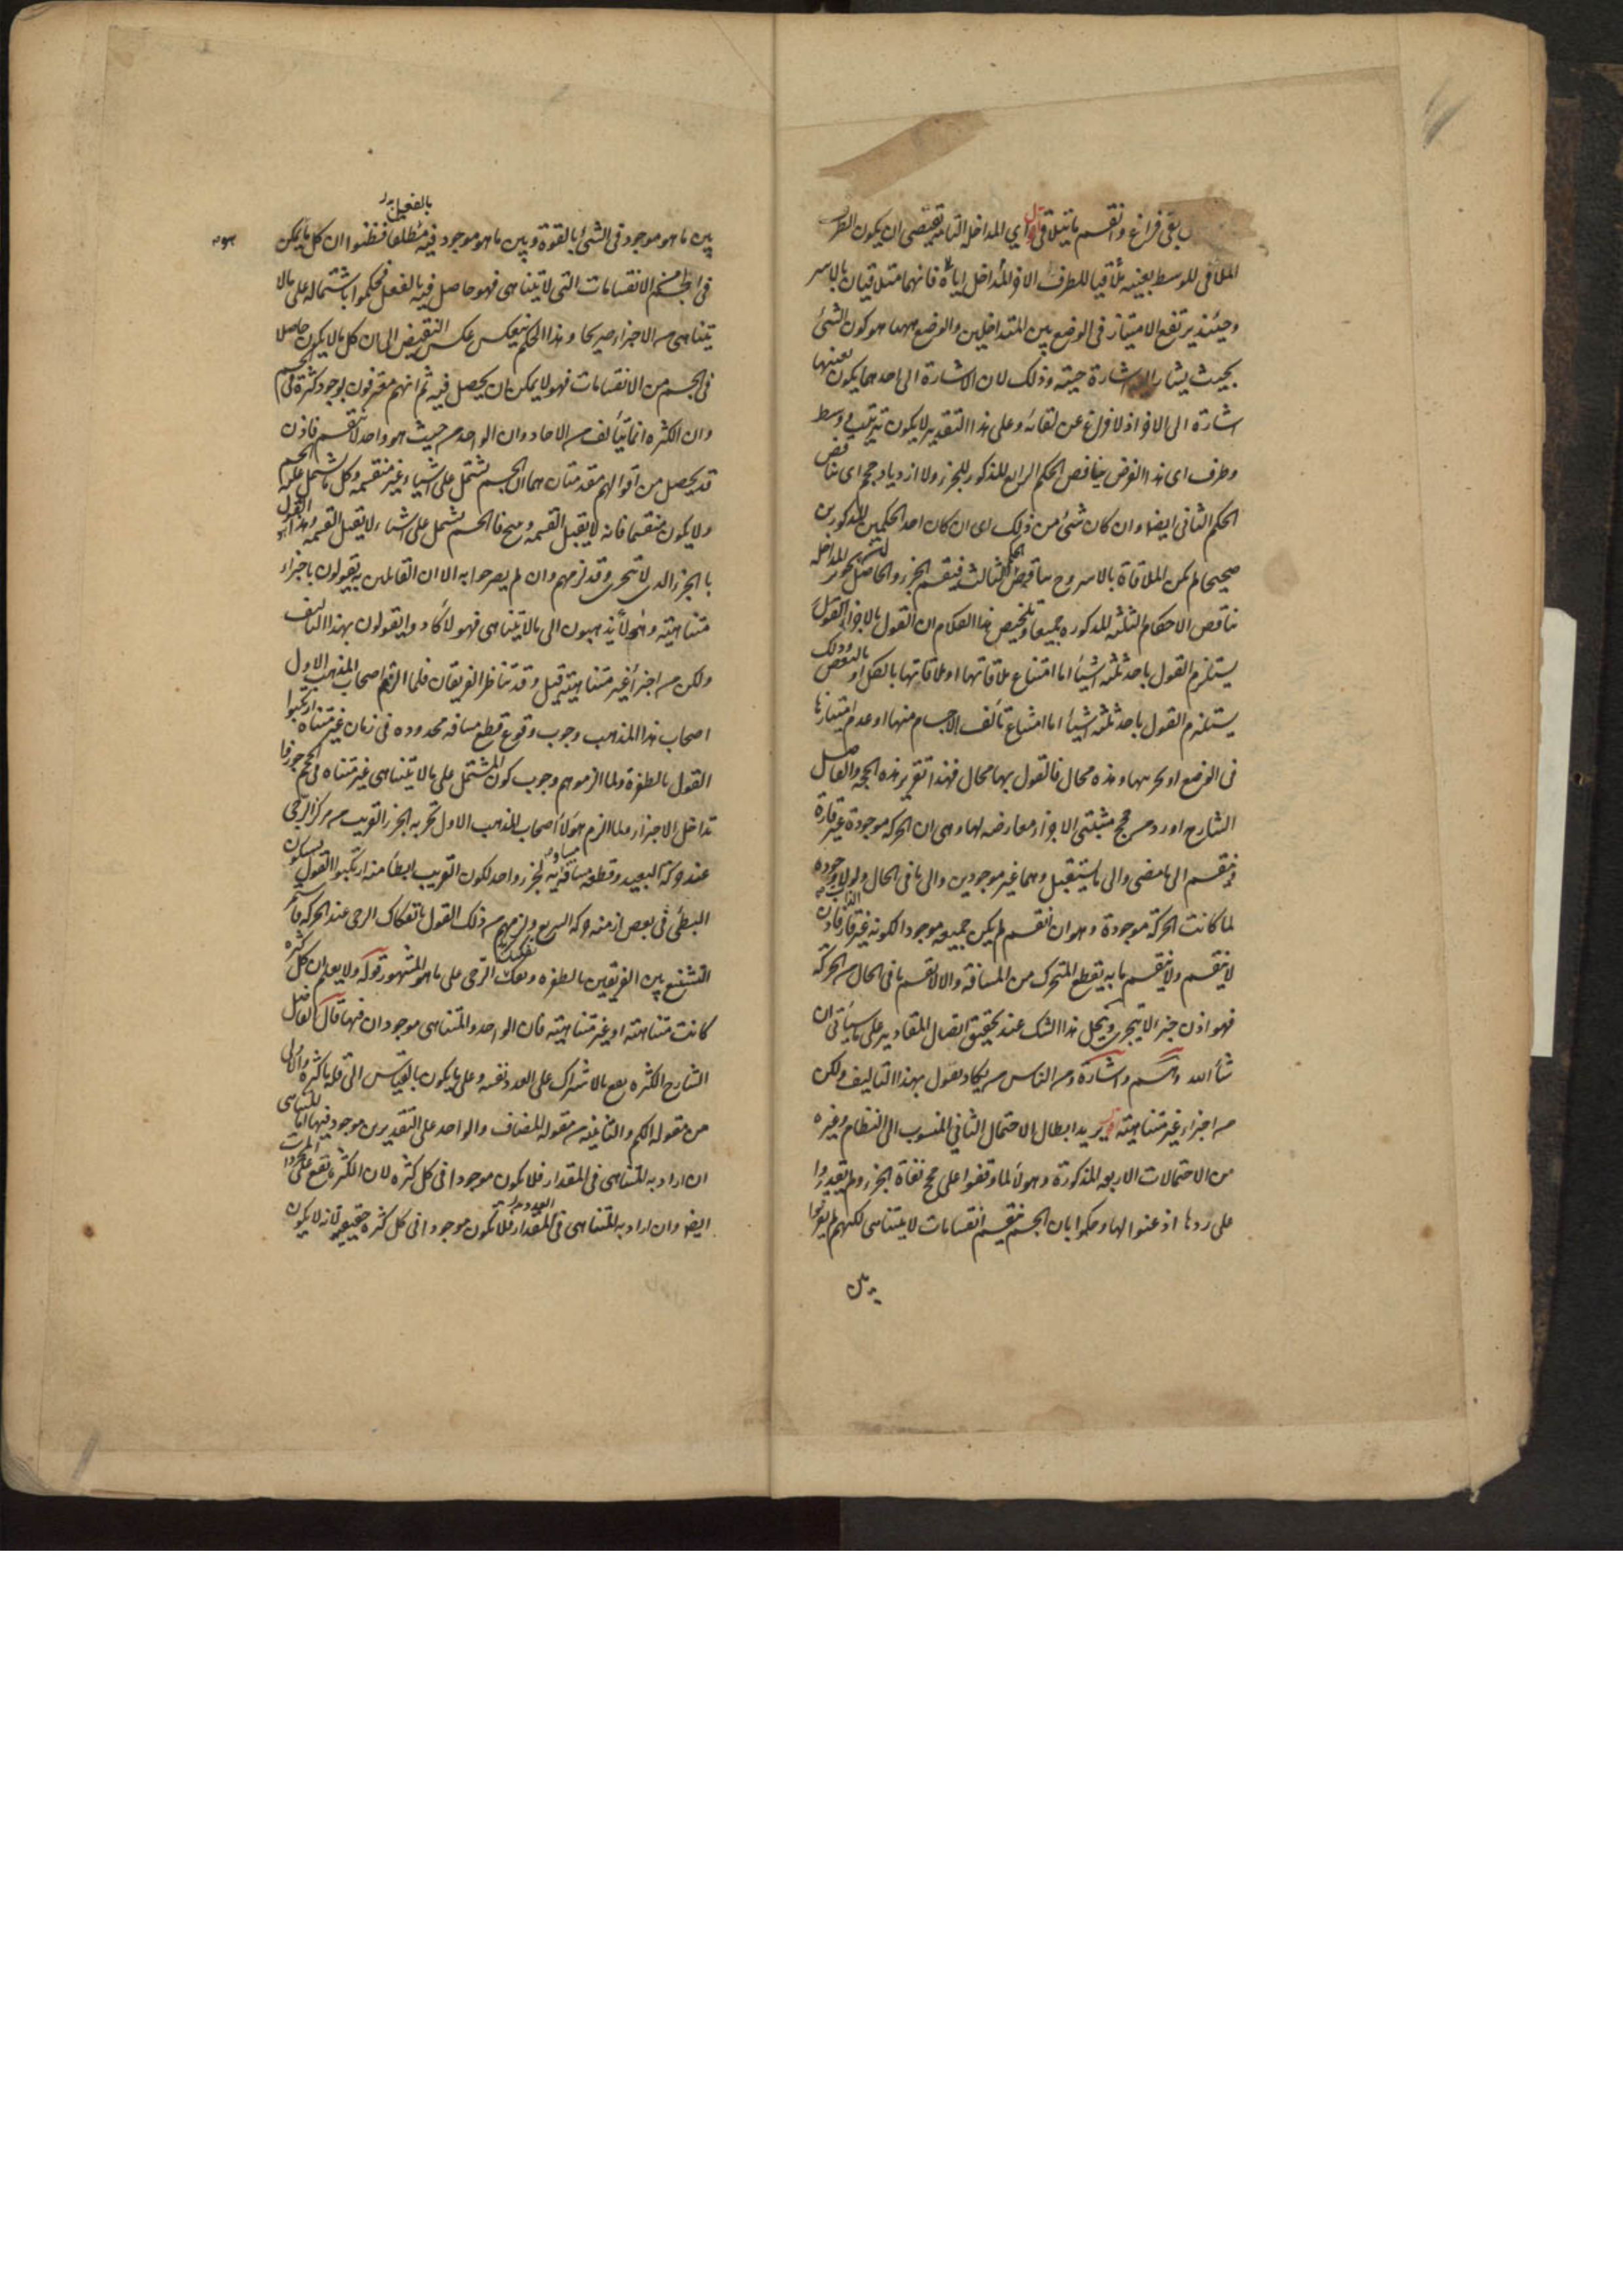 بقى فراغ وانقسم ما يتلاقى قال اي المداخلة التامة تقتضى ان يكون الطرف
الملاقى للوسط بعينه ملاقيا للطرف الاخر المداخل اياه فانهما متلاقيان بالاسر
وحينئذ يرتفع الامتياز فى الوضع بين المتداخلين والوضع ههنا هو كون الشئ
بحيث يشار اليه اشارة حسية وذلك لان الاشارة الى احدهما يكون بعينها
اشارة الى الاخر اذ لا فراغ عن لقائه وعلى هذا التقدير لا يكون ترتيب وسط
وطرف اى هذا الفرض يناقض الحكم الرابع المذكور للجزء ولا ازدياد حجم اى يناقض
الحكم الثانى ايضا وان كان شئ من ذلك اى ان كان احد الحكمين المذكورين
صحيحا لم يكن الملاقاة بالاسر وح يناقض الحكم الثالث فينقسم الجزء والحاصل ان تجويز المداخلة
يناقض الاحكام الثلثة المذكورة جميعا وتلخيص هذا الكلام ان القول بالاجزاء
يستلزم القول باحد ثلثة اشياء اما امتناع ملاقاتها او ملاقاتها بالكل او بالبعض وذلك
يستلزم القول باحد ثلثة اشياء اما امتناع تألف الاجسام منها او عدم امتيازها
فى الوضع او تجزيها وهذه محال فالقول بها محال فهذا تقرير هذه الحجة والفاضل
الشارح اورد من حجج مثبتى الاجزاء معارضة لها وهى ان الحركة موجودة غير قارة
وينقسم الى ما مضى والى ما يستقبل وهما غير موجودين والى ما فى الحال ولولا وجوده
لما كانت الحركة موجودة وهو ان انقسم لم يكن جميعه موجودا لكونه غير قار فاذن
لا ينقسم ولا ينقسم ما به يقطع المتحرك من المسافة والا لانقسم ما فى الحال من الحركة
فهو اذن جزء لا يتجزى وينحل هذا الشك عند تحقيق اتصال المقادير على ما سيأتى ان
شاء الله وهم واشارة ومن الناس من يكاد يقول بهذا التاليف ولكن
من اجزاء غير متناهية يريد ابطال الاحتمال الثانى المنسوب الى النظام وغيره
من الاحتمالات الاربعة المذكورة وهؤلاء لما وقفوا على حجج نفاة الجزء ولم يقدروا
على ردها اذعنوا لها وحكموا بان الجسم ينقسم انقسامات لا يتناهى لكنهم لم يفرقوا
بين
بين ما هو موجود فى الشئ بالقوة وبين ما هو موجود فيه مطلقا فظنوا ان كل ما يمكن
بالفعل
فى الجسم من الانقسامات التى لا يتناهى فهو حاصل فيه بالفعل فحكموا باشتماله على ما لا
يتناهى من الاجزاء صريحا وهذا الحكم ينعكس عكس النقيض الى ان كل ما لا يكون حاصلا
فى الجسم من الانقسامات فهو لا يمكن ان يحصل فيه ثم انهم معترفون بوجود كثرة فى الجسم
وان الكثرة انما يتألف من الاحاد وان الواحد من حيث هو واحد لا ينقسم فاذن
قد يحصل من اقوالهم مقدمتان هما ان الجسم يشتمل على اشياء غير منقسمة وكل ما يشتمل عليه الجسم
ولا يكون منقسما فانه لا يقبل القسمة وينتج فالجسم يشتمل على اشياء لا يقبل القسمة وهذا هو القول
بالجزء الذى لا يتجزى وقد لزمهم وان لم يصرحوا به الا ان القائلين به يقولون باجزاء
متناهية وهؤلاء يذهبون الى ما لا يتناهى فهؤلاء كادوا يقولون بهذا التاليف
ولكن من اجزاء غير متناهية قيل وقد تناظر الفريقان فلما الزم اصحاب المذهب الاول
اصحاب هذا المذهب وجوب وقوع قطع مسافة محدودة فى زمان غير متناه ارتكبوا
القول بالطفرة ولما الزموهم وجوب كون المشتمل على ما لا يتناهى غير متناه فى الحجم جوزوا
تداخل الاجزاء ولما الزم هؤلاء اصحاب المذهب الاول تجزيه الجزء القريب من مركز الرحى
عند حركة البعيد وقطعه مسافة مساوية لجزء واحد لكون القريب ابطأ منه ارتكبوا القول بسكون
البطئ فى بعض ازمنة حركة السريع ولزمهم من ذلك القول بانفكاك الرحى عند الحركة فاستمر
التشنيع بين الفريقين بالطفرة وتفكك الرحى على ما هو المشهور قوله ولا يعلم ان كل كثرة
كانت متناهية او غير متناهية فان الواحد والمتناهى موجودان فيها قال الفاضل
الشارح الكثرة يقع بالاشتراك على العدد نفسه وعلى ما يكون بالقياس الى قلة ما كثرة والاولى
من مقولة الكم والثانية من مقولة المضاف والواحد على التقديرين موجود فيها اما المتناهى
ان اراد به المتناهى فى المقدار فلا يكون موجودا فى كل كثرة لان الكثرة تقع على المجردات
ايضا وان اراد به المتناهى فى العدد فلا يكون موجودا فى كل كثرة حقيقية لانه لا يكون